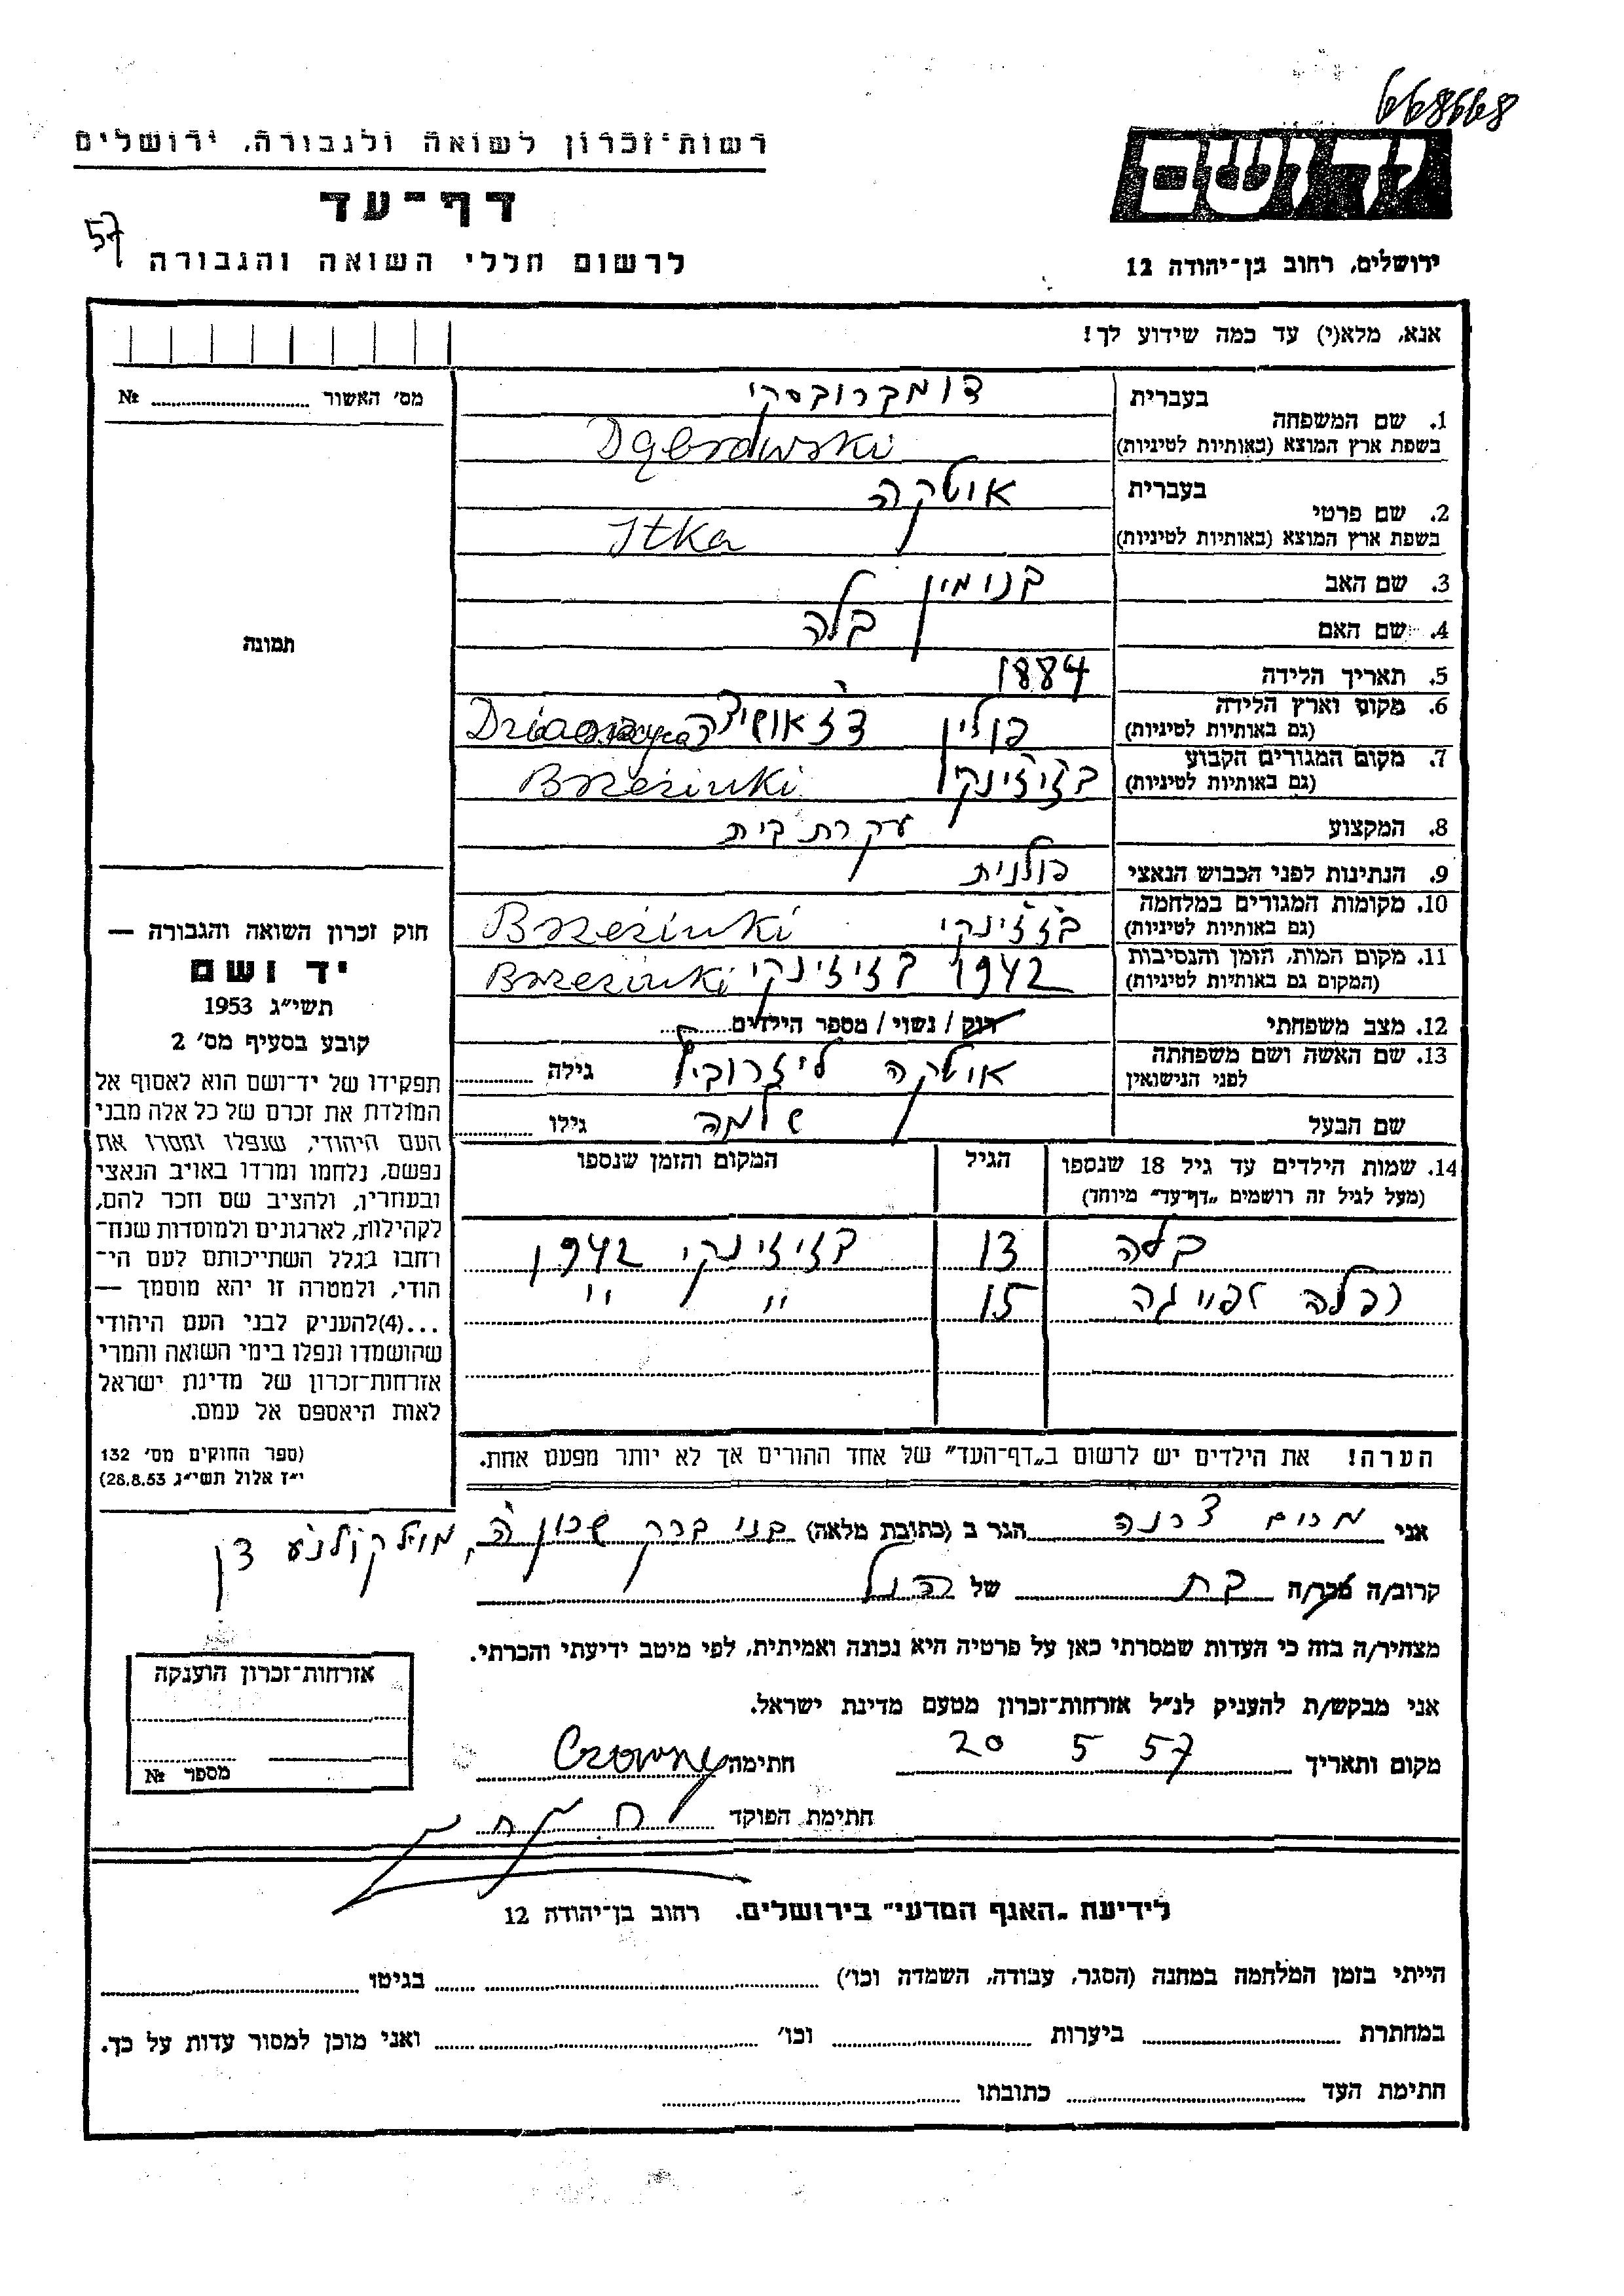 668668
רשות־זכרון לשואה ולגבורה, ירושלים
ידושם
דף־עד
57
לרשום חללי השואה והגבורה
ירושלים, רחוב בן־יהודה 12
אנא, מלא(י) עד כמה שידוע לך!
מס' האשור № 
1. שם המשפחה בעברית דומברובסקי
בשפת ארץ המוצא (באותיות לטיניות) Dąbrowski
2. שם פרטי בעברית איטקה
בשפת ארץ המוצא (באותיות לטיניות) Itka
3. שם האב בנימין
4. שם האם בלה
תמונה
5. תאריך הלידה 1884
6. מקום וארץ הלידה פולין
(גם באותיות לטיניות)
7. מקום המגורים הקבוע בז'ז'ינקי Brzeźinki
(גם באותיות לטיניות)
8. המקצוע עקרת בית
9. הנתינות לפני הכבוש הנאצי פולנית
10. מקומות המגורים במלחמה בז'ז'ינקי Brzeźinki
(גם באותיות לטיניות)
11. מקום המות, הזמן והנסיבות 1942 בזיזינקי Brzezinki
(המקום גם באותיות לטיניות)
12. מצב משפחתי רוק / נשוי / מספר הילדים
13. שם האשה ושם משפחתה איטקה גילה
לפני הנישואין
שם הבעל שלמה גילו
14. שמות הילדים עד גיל 18 שנספו הגיל המקום והזמן שנספו
(מעל לגיל זה רושמים „דף־עד" מיוחד)
בלה 13 בזיזינקי 1942
15 " " "
חוק זכרון השואה והגבורה —
יד ושם
תשי״ג 1953
קובע בסעיף מס' 2
תפקידו של יד־ושם הוא לאסוף אל
המולדת את זכרם של כל אלה מבני
העם היהודי, שנפלו ומסרו את
נפשם, נלחמו ומרדו באויב הנאצי
ובעוזריו, ולהציב שם וזכר להם,
לקהילות, לארגונים ולמוסדות שנח־
רחבו בגלל השתייכותם לעם הי־
הודי, ולמטרה זו יהא מוסמך —
...(4)להעניק לבני העם היהודי
שהושמדו ונפלו בימי השואה והמרי
אזרחות־זכרון של מדינת ישראל
לאות היאספם אל עמם.
(ספר החוקים מס' 132
י״ז אלול תשי״ג 28.8.53)
הערה! את הילדים יש לרשום ב„דף־העד" של אחד ההורים אך לא יותר מפעם אחת.
אני מרים צרנה הגר ב (כתובת מלאה) בני ברק שכון ה,
קרוב/ה מכר/ה בת של הנ״ל
מצהיר/ה בזה כי העדות שמסרתי כאן על פרטיה היא נכונה ואמיתית, לפי מיטב ידיעתי והכרתי.
אני מבקש/ת להעניק לנ״ל אזרחות־זכרון מטעם מדינת ישראל.
מקום ותאריך 20 5 57 חתימה Czowny
חתימת הפוקד
אזרחות־זכרון הוענקה
מספר №
לידיעת „האגף המדעי" בירושלים. רחוב בן־יהודה 12
הייתי בזמן המלחמה במחנה (הסגר, עבודה, השמדה וכו') בגיטו
במחתרת ביערות וכו' ואני מוכן למסור עדות על כך.
חתימת העד כתובתו